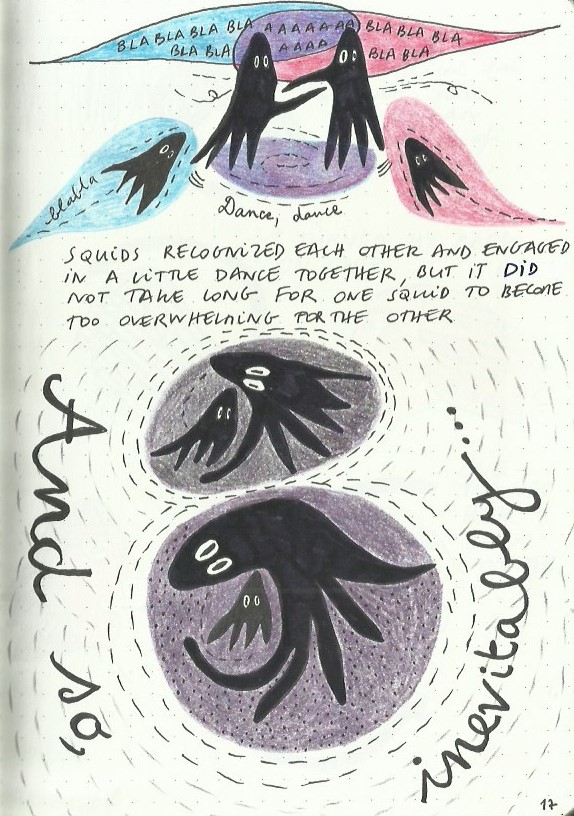 BLA BLA BLA BLA A A A A A A A BLA BLA BLA
BLA BLA A A A A BLA BLA
blabla
Dance, dance
SQUIDS RECOGNIZED EACH OTHER AND ENGAGED
IN A LITTLE DANCE TOGETHER, BUT IT DID
NOT TAKE LONG FOR ONE SQUID TO BECOME
TOO OVERWHELMING FOR THE OTHER
And so,
inevitabley...
17